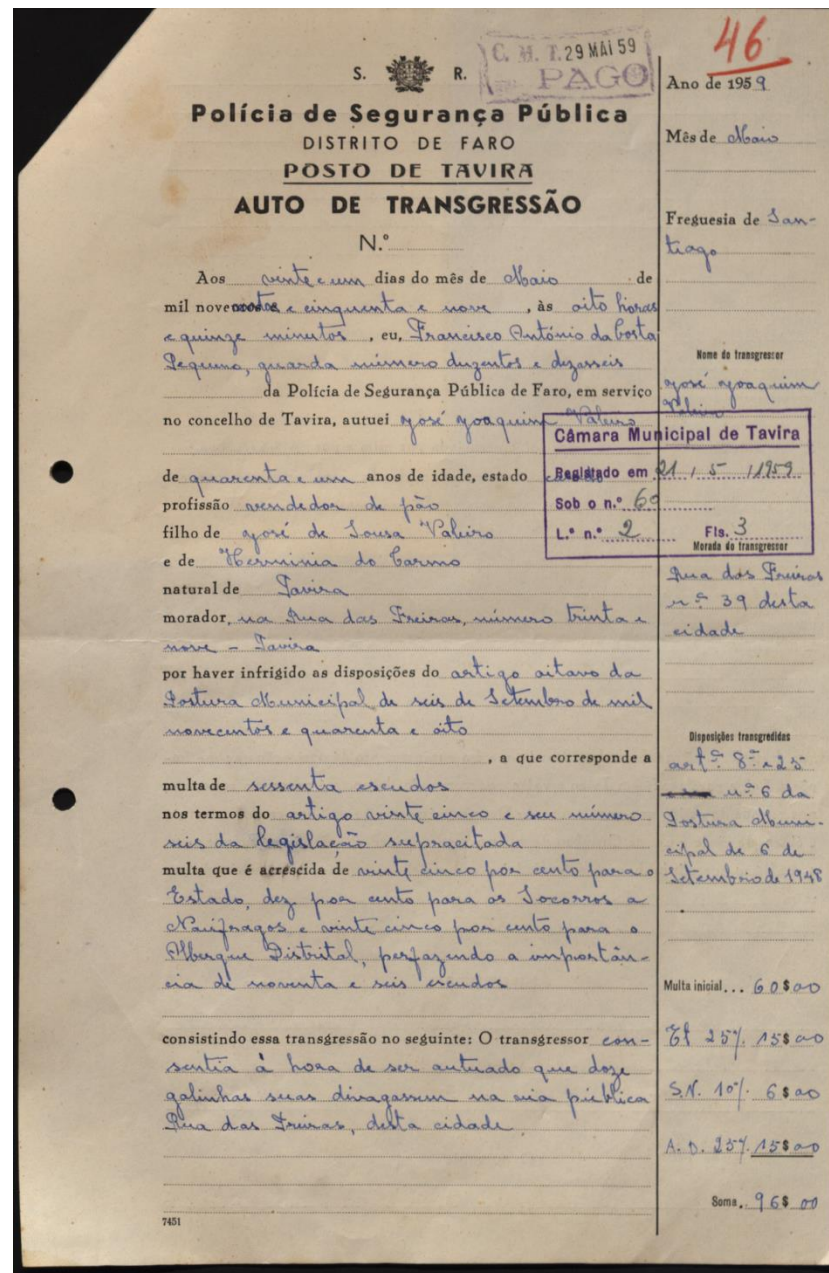 C. M. T. 29 MAI 59
PAGO
46
S. R.
Polícia de Segurança Pública
DISTRITO DE FARO
POSTO DE TAVIRA
AUTO DE TRANSGRESSÃO
N.º
Aos vinte e um dias do mês de Maio de
mil novecentos e cinquenta e nove, às oito horas
e quinze minutos, eu, Francisco António da Costa
Pequeno, guarda número duzentos e dezasseis
da Polícia de Segurança Pública de Faro, em serviço
no concelho de Tavira, autuei José Joaquim Valeiro
de quarenta e um anos de idade, estado
profissão vendedor de pão
filho de José de Sousa Valeiro
e de Herminia do Carmo
natural de Tavira
morador, na Rua das Freiras, número trinta e
nove - Tavira
por haver infrigido as disposições do artigo oitavo da
Postura Municipal de seis de Setembro de mil
novecentos e quarenta e oito
, a que corresponde a
multa de sessenta escudos
nos termos do artigo vinte cinco e seu número
seis da legislação supracitada
multa que é acrescida de vinte cinco por cento para o
Estado, dez por cento para os Socorros a
Naúfragos e vinte cinco por cento para o
Albergue Distrital, perfazendo a importân-
cia de noventa e seis escudos
consistindo essa transgressão no seguinte: O transgressor con-
sentia à hora de ser autuado que doze
galinhas suas divagassem na via pública
Rua das Freiras, desta cidade
7451
Ano de 1959
Mês de Maio
Freguesia de San-
tiago
Nome do transgressor
José Joaquim
Valeiro
Câmara Municipal de Tavira
Registado em 21 / 5 / 1959
Sob o n.º 60
L.º n.º 2 Fls. 3
Morada do transgressor
Rua das Freiras
n.º 39 desta
cidade
Disposições transgredidas
artº 8º e 25
nº 6 da
Postura Muni-
cipal de 6 de
Setembro de 1948
Multa inicial... 60$00
Et 25% 15$00
S.N. 10% 6$00
A. D. 25% 15$00
Soma.. 96$00